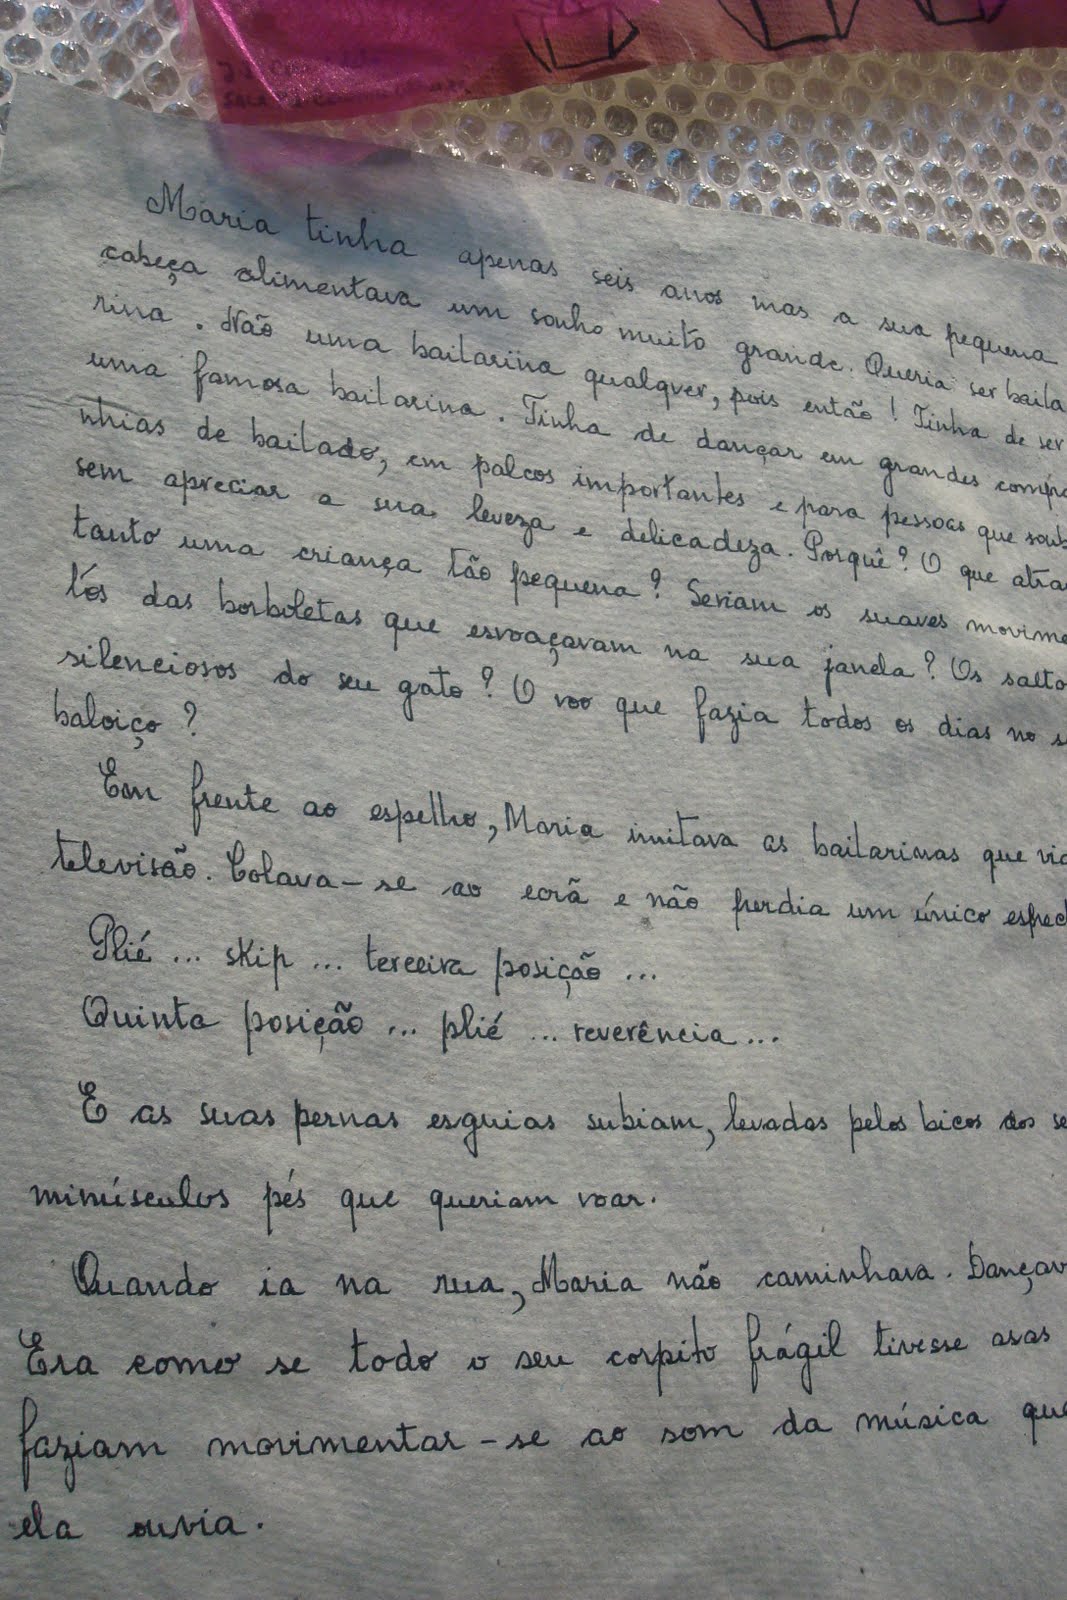 Maria tinha apenas seis anos mas a sua pequena
cabeça alimentava um sonho muito grande. Queria ser baila
rina. Não uma bailarina qualquer, pois então! Tinha de ser
uma famosa bailarina. Tinha de dançar em grandes compa
nhias de bailado, em palcos importantes e para pessoas que soub
sem apreciar a sua leveza e delicadeza. Porquê? O que atra
tanto uma criança tão pequena? Seriam os suaves movime
tos das borboletas que esvoaçavam na sua janela? Os salto
silenciosos do seu gato? O voo que fazia todos os dias no s
baloiço?
Em frente ao espelho, Maria imitava as bailarinas que via
televisão. Colava-se ao ecrã e não perdia um único espec
Plié ... skip ... terceira posição ...
Quinta posição ... plié ... reverência ...
E as suas pernas esguias subiam, levadas pelos bicos dos se
minúsculos pés que queriam voar.
Quando ia na rua, Maria não caminhava. Dançav
Era como se todo o seu corpito frágil tivesse asas
faziam movimentar-se ao som da música que
ela ouvia.